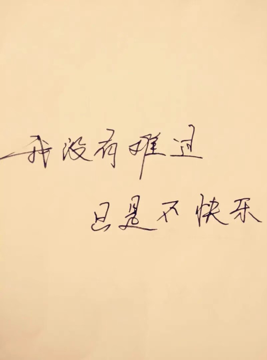 我没有难过
只是不快乐